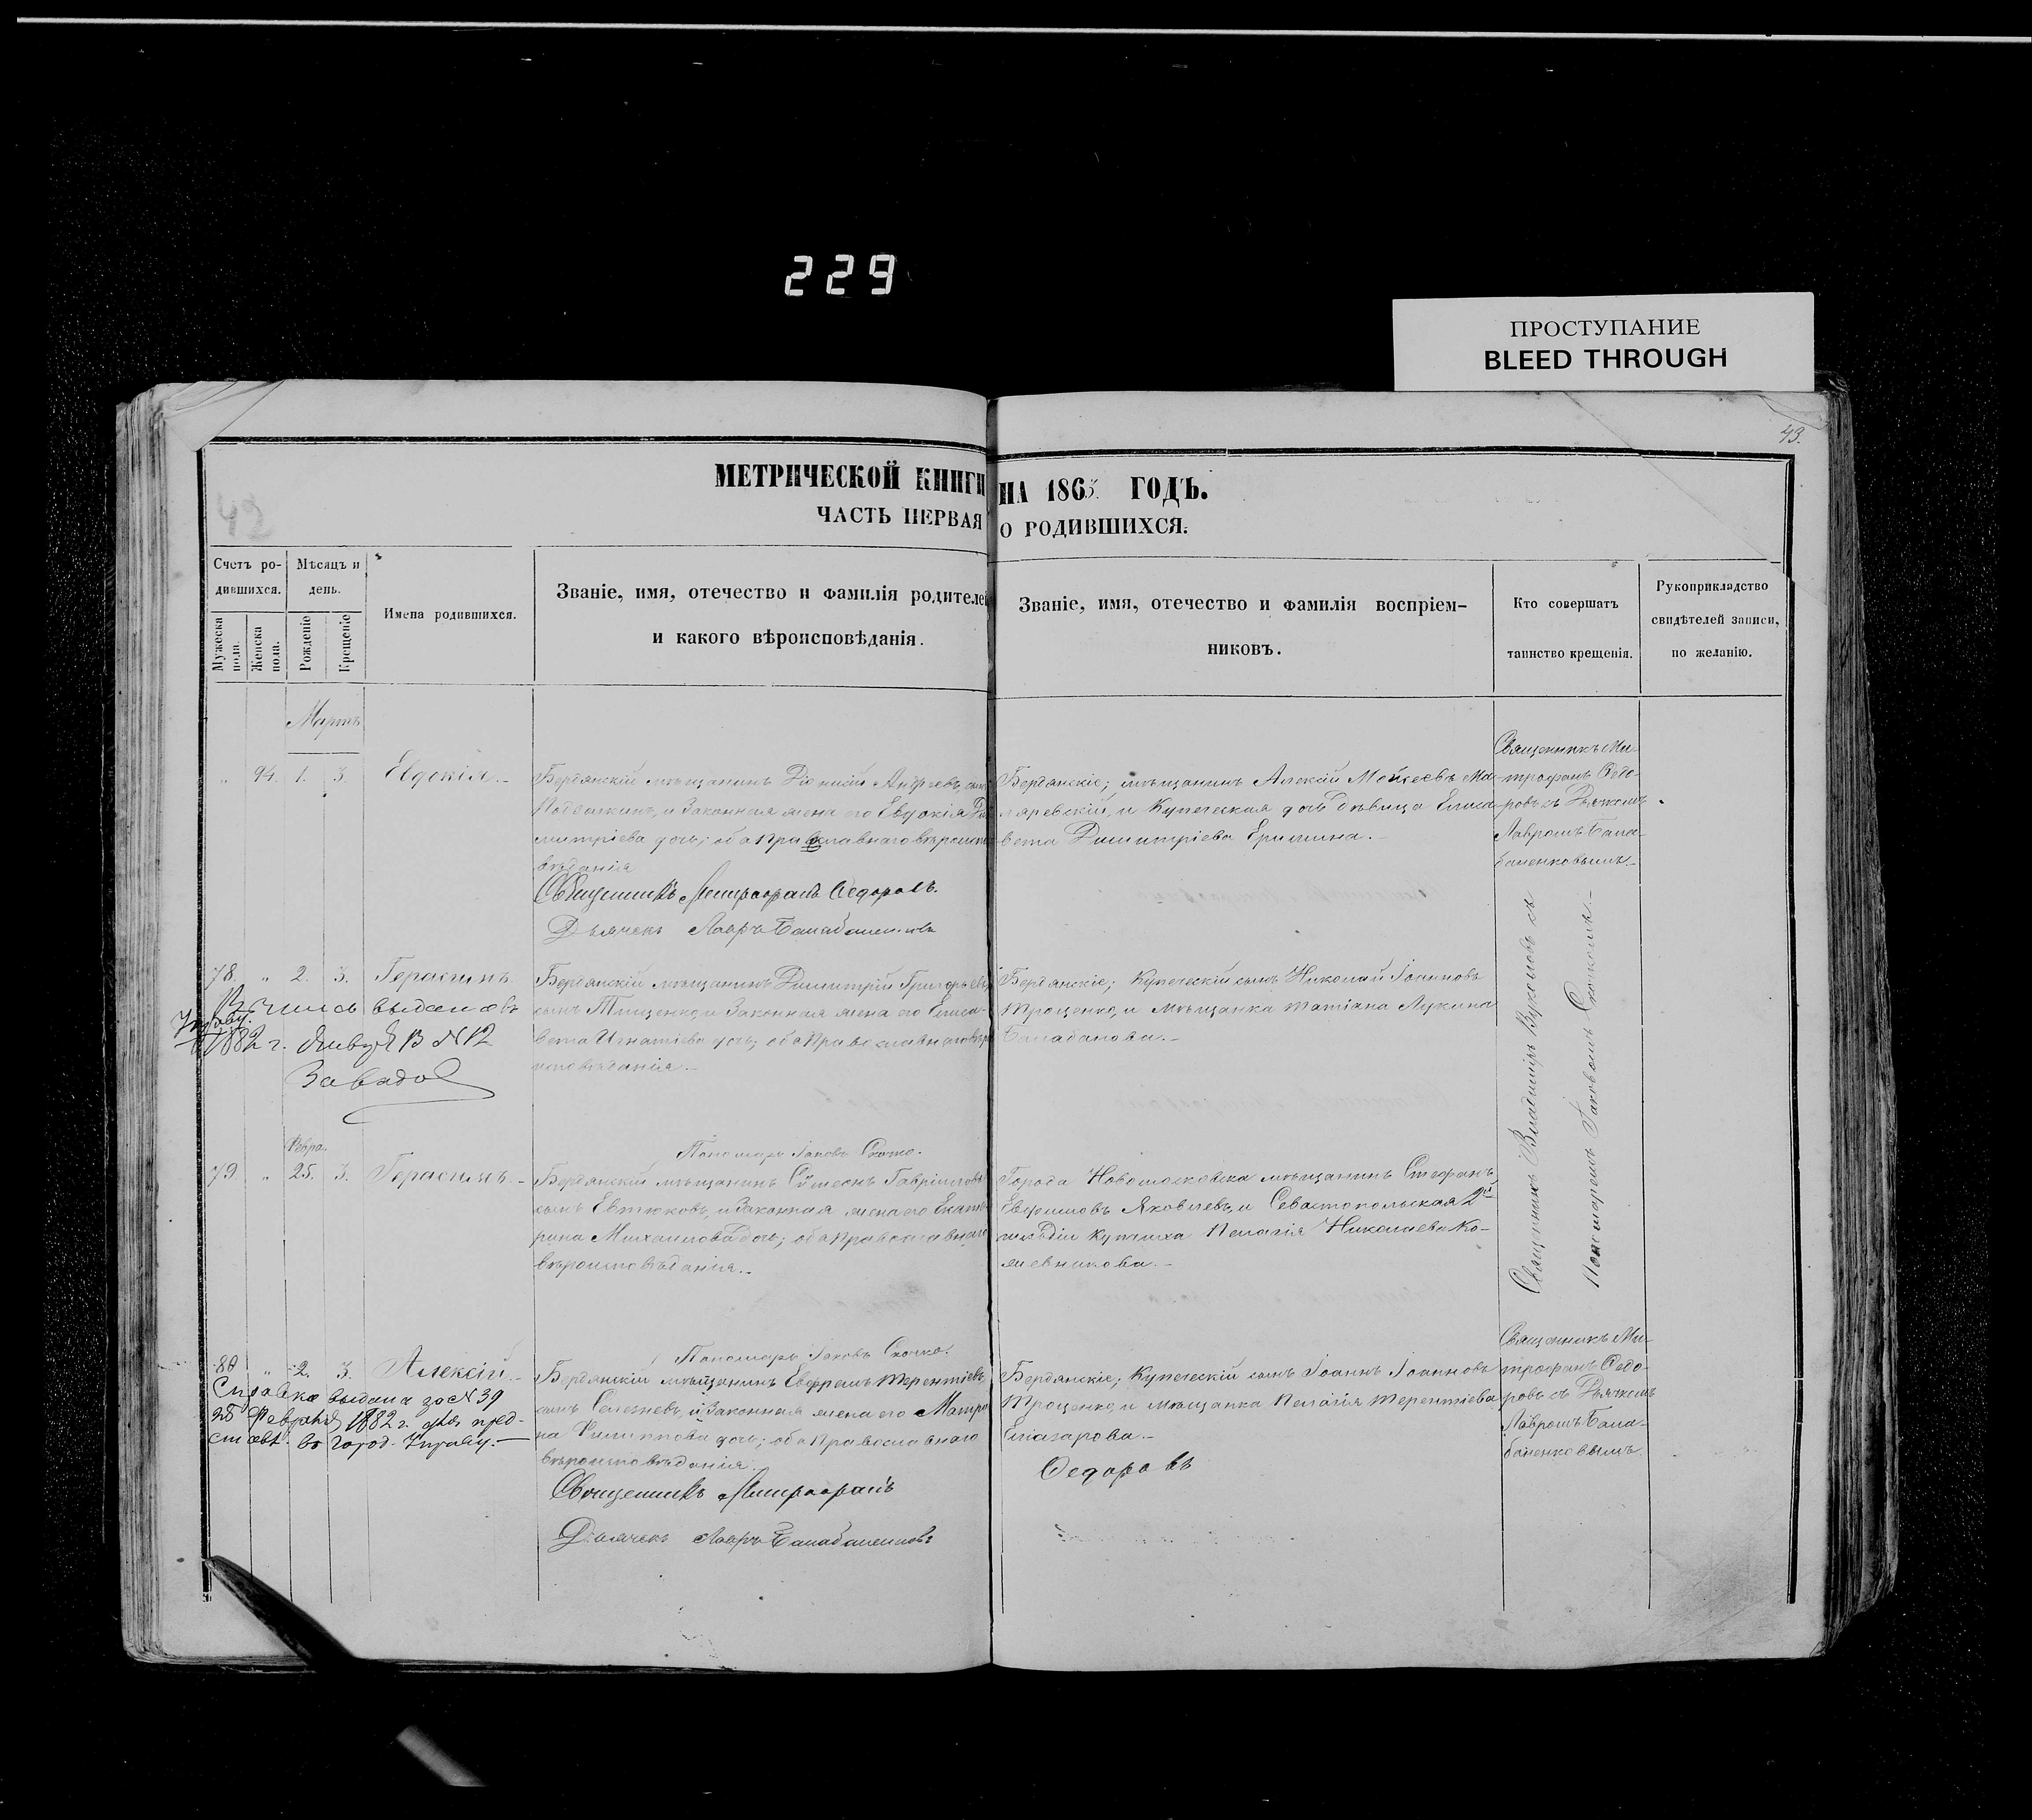 229
ПРОСТУПАНИЕ
BLEED THROUGH
43.
42
МЕТРИЧЕСКОЙ КНИГИ НА 1865 ГОДЪ.
ЧАСТЬ ПЕРВАЯ О РОДИВШИХСЯ.
Счетъ ро-
дившихся.
Мужеска пола.
Женска пола.
Мѣсяцъ и
день.
Рожденіе
Крещеніе
Имена родившихся.
Званіе, имя, отечество и фамилія родителей
и какого вѣроисповѣданія.
Званіе, имя, отечество и фамилія воспріем-
никовъ.
Кто совершатъ
таинство крещенія.
Рукоприкладство
свидѣтелей записи,
по желанію.
Мартъ
" 94. 1. 3. Евдокія.-
Бердянскій мѣщанинъ
и Законная жена его Евдокія Ди-
митріева дочь; оба Православнаго вѣроиспо-
вѣданія
Священникъ Митрофанъ Ѳедоровъ.
Дьячекъ Лавръ Балабаненковъ
Бердянскіе; мѣщанинъ Алексій Моисеевъ Ма-
ляревскій, и Купеческая дочь дѣвица Елиса-
вета Димитріева Еришина.-
Священникъ Ми-
трофанъ Ѳедо-
ровъ съ Дьячкомъ
Лавромъ Бала-
баненковымъ.-
78. " 2. 3. Герасимъ
выдана въ
Управу.
1882 г. Января 13 № 12
Завадов
Бердянскій мѣщанинъ Димитрій Григорьевъ
сынъ Тищенко, и Законная жена его Елиса-
вета Игнатіева дочь; оба Православнаго вѣро-
исповѣданія.-
Пономарь Іаковъ Скочко.
Бердянскіе; Купеческій сынъ Николай Іоанновъ
Троценко, и мѣщанка Татіана Лукина
Балабанова.-
Священникъ Владимір Вуколовъ съ
Пономаремъ Іаковомъ Скочкомъ.-
Февра.
79. " 25. 3. Герасимъ.-
Бердянскій мѣщанинъ Сѵмеонъ Гавріиловъ
сынъ Евтюковъ, и Законная жена его Екате-
рина Михаилова дочь; оба Православнаго
вѣроисповѣданія.-
Пономарь Іаковъ Скочко.
Города Новомосковска мѣщанинъ Стефанъ
Евфимовъ Яковлевъ, и Севастопольская 2й
гильдіи купчиха Пелагія Николаева Ко-
жевникова.-
80 " 2. 3. Алексій.-
Справка выдана за № 39
Февраля 1882 г. для пред-
ставл. въ Город. Управу.-
Бердянскій мѣщанинъ Евфремъ Терентіевъ
сынъ Селезневъ, и Законная жена его Матро-
на Филиппова дочь; оба Православнаго
вѣроисповѣданія.
Священникъ Митрофанъ Ѳедоровъ
Дьячекъ Лавръ Балабаненковъ
Бердянскіе; Купеческій сынъ Іоаннъ Іоанновъ
Троценко, и мѣщанка Пелагія Терентіева
Елиазарова.-
Священникъ Ми-
трофанъ Ѳедо-
ровъ съ Дьячкомъ
Лавромъ Бала-
баненковымъ.